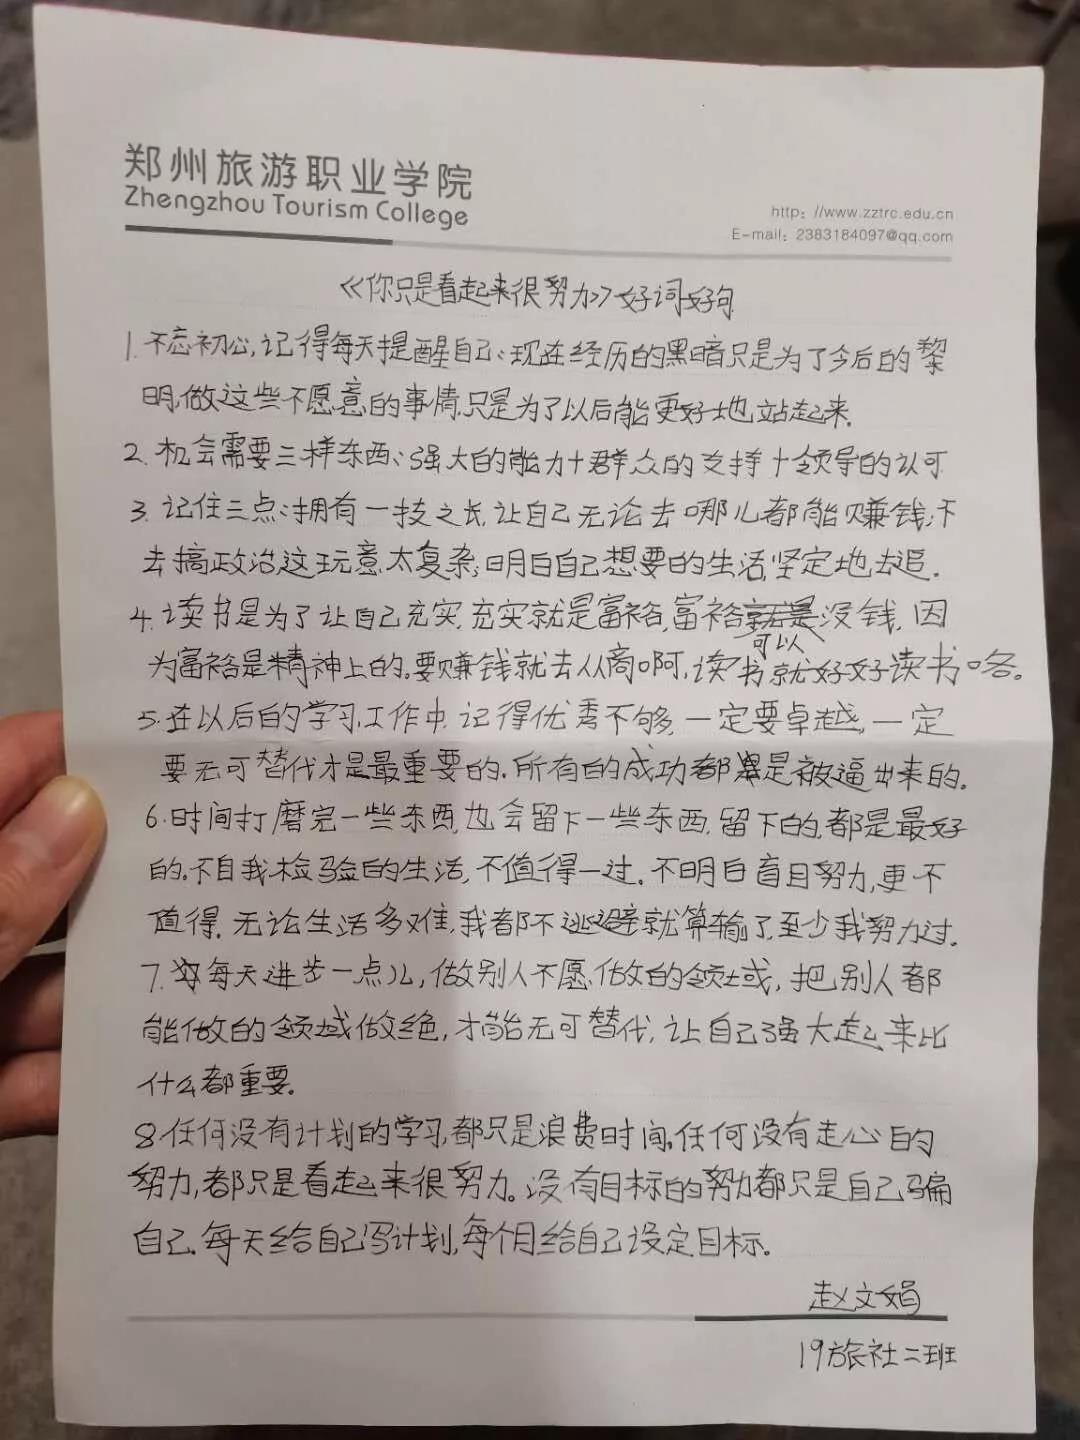 郑州旅游职业学院
Zhengzhou Tourism College
http: //www.zztrc.edu.cn
E-mail: 2383184097@qq.com
《你只是看起来很努力》好词好句
1. 不忘初心,记得每天提醒自己:现在经历的黑暗只是为了今后的黎
明,做这些不愿意的事情,只是为了以后能更好地站起来.
2. 机会需要三样东西:强大的能力+群众的支持+领导的认可
3. 记住三点:拥有一技之长,让自己无论去哪儿都能赚钱;不
去搞政治,这玩意太复杂;明白自己想要的生活,坚定地去追.
4. 读书是为了让自己充实,充实就是富裕,富裕就是没钱,因
可以
为富裕是精神上的.要赚钱就去从商啊,读书就好好读书咯。
5. 在以后的学习工作中,记得优秀不够,一定要卓越,一定
要无可替代才是最重要的.所有的成功都是被逼出来的.
6. 时间打磨完一些东西,也会留下一些东西,留下的,都是最好
的.不自我检验的生活,不值得一过.不明白盲目努力,更不
值得.无论生活多难,我都不逃避就算输了,至少我努力过.
7. 每天进步一点儿,做别人不愿做的领域,把别人都
能做的领域做绝,才能无可替代,让自己强大起来比
什么都重要.
8.任何没有计划的学习,都只是浪费时间.任何没有走心的
努力,都只是看起来很努力。没有目标的努力都只是自己骗
自己.每天给自己写计划,每个月给自己设定目标.
赵文娟
19旅社二班